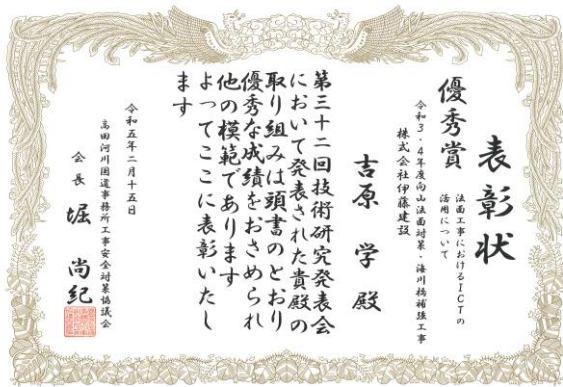 表彰状
優秀賞
法面工事におけるICTの
活用について
令和3・4年度向山法面対策・海川橋補強工事
株式会社伊藤建設
吉原 学 殿
第三十二回技術研究発表会
において発表された貴殿の
取り組みは頭書のとおり
優秀な成績をおさめられ
他の模範であります
よってここに表彰いたし
ます
令和五年二月十五日
高田河川国道事務所工事安全対策協議会
会長 堀 尚紀